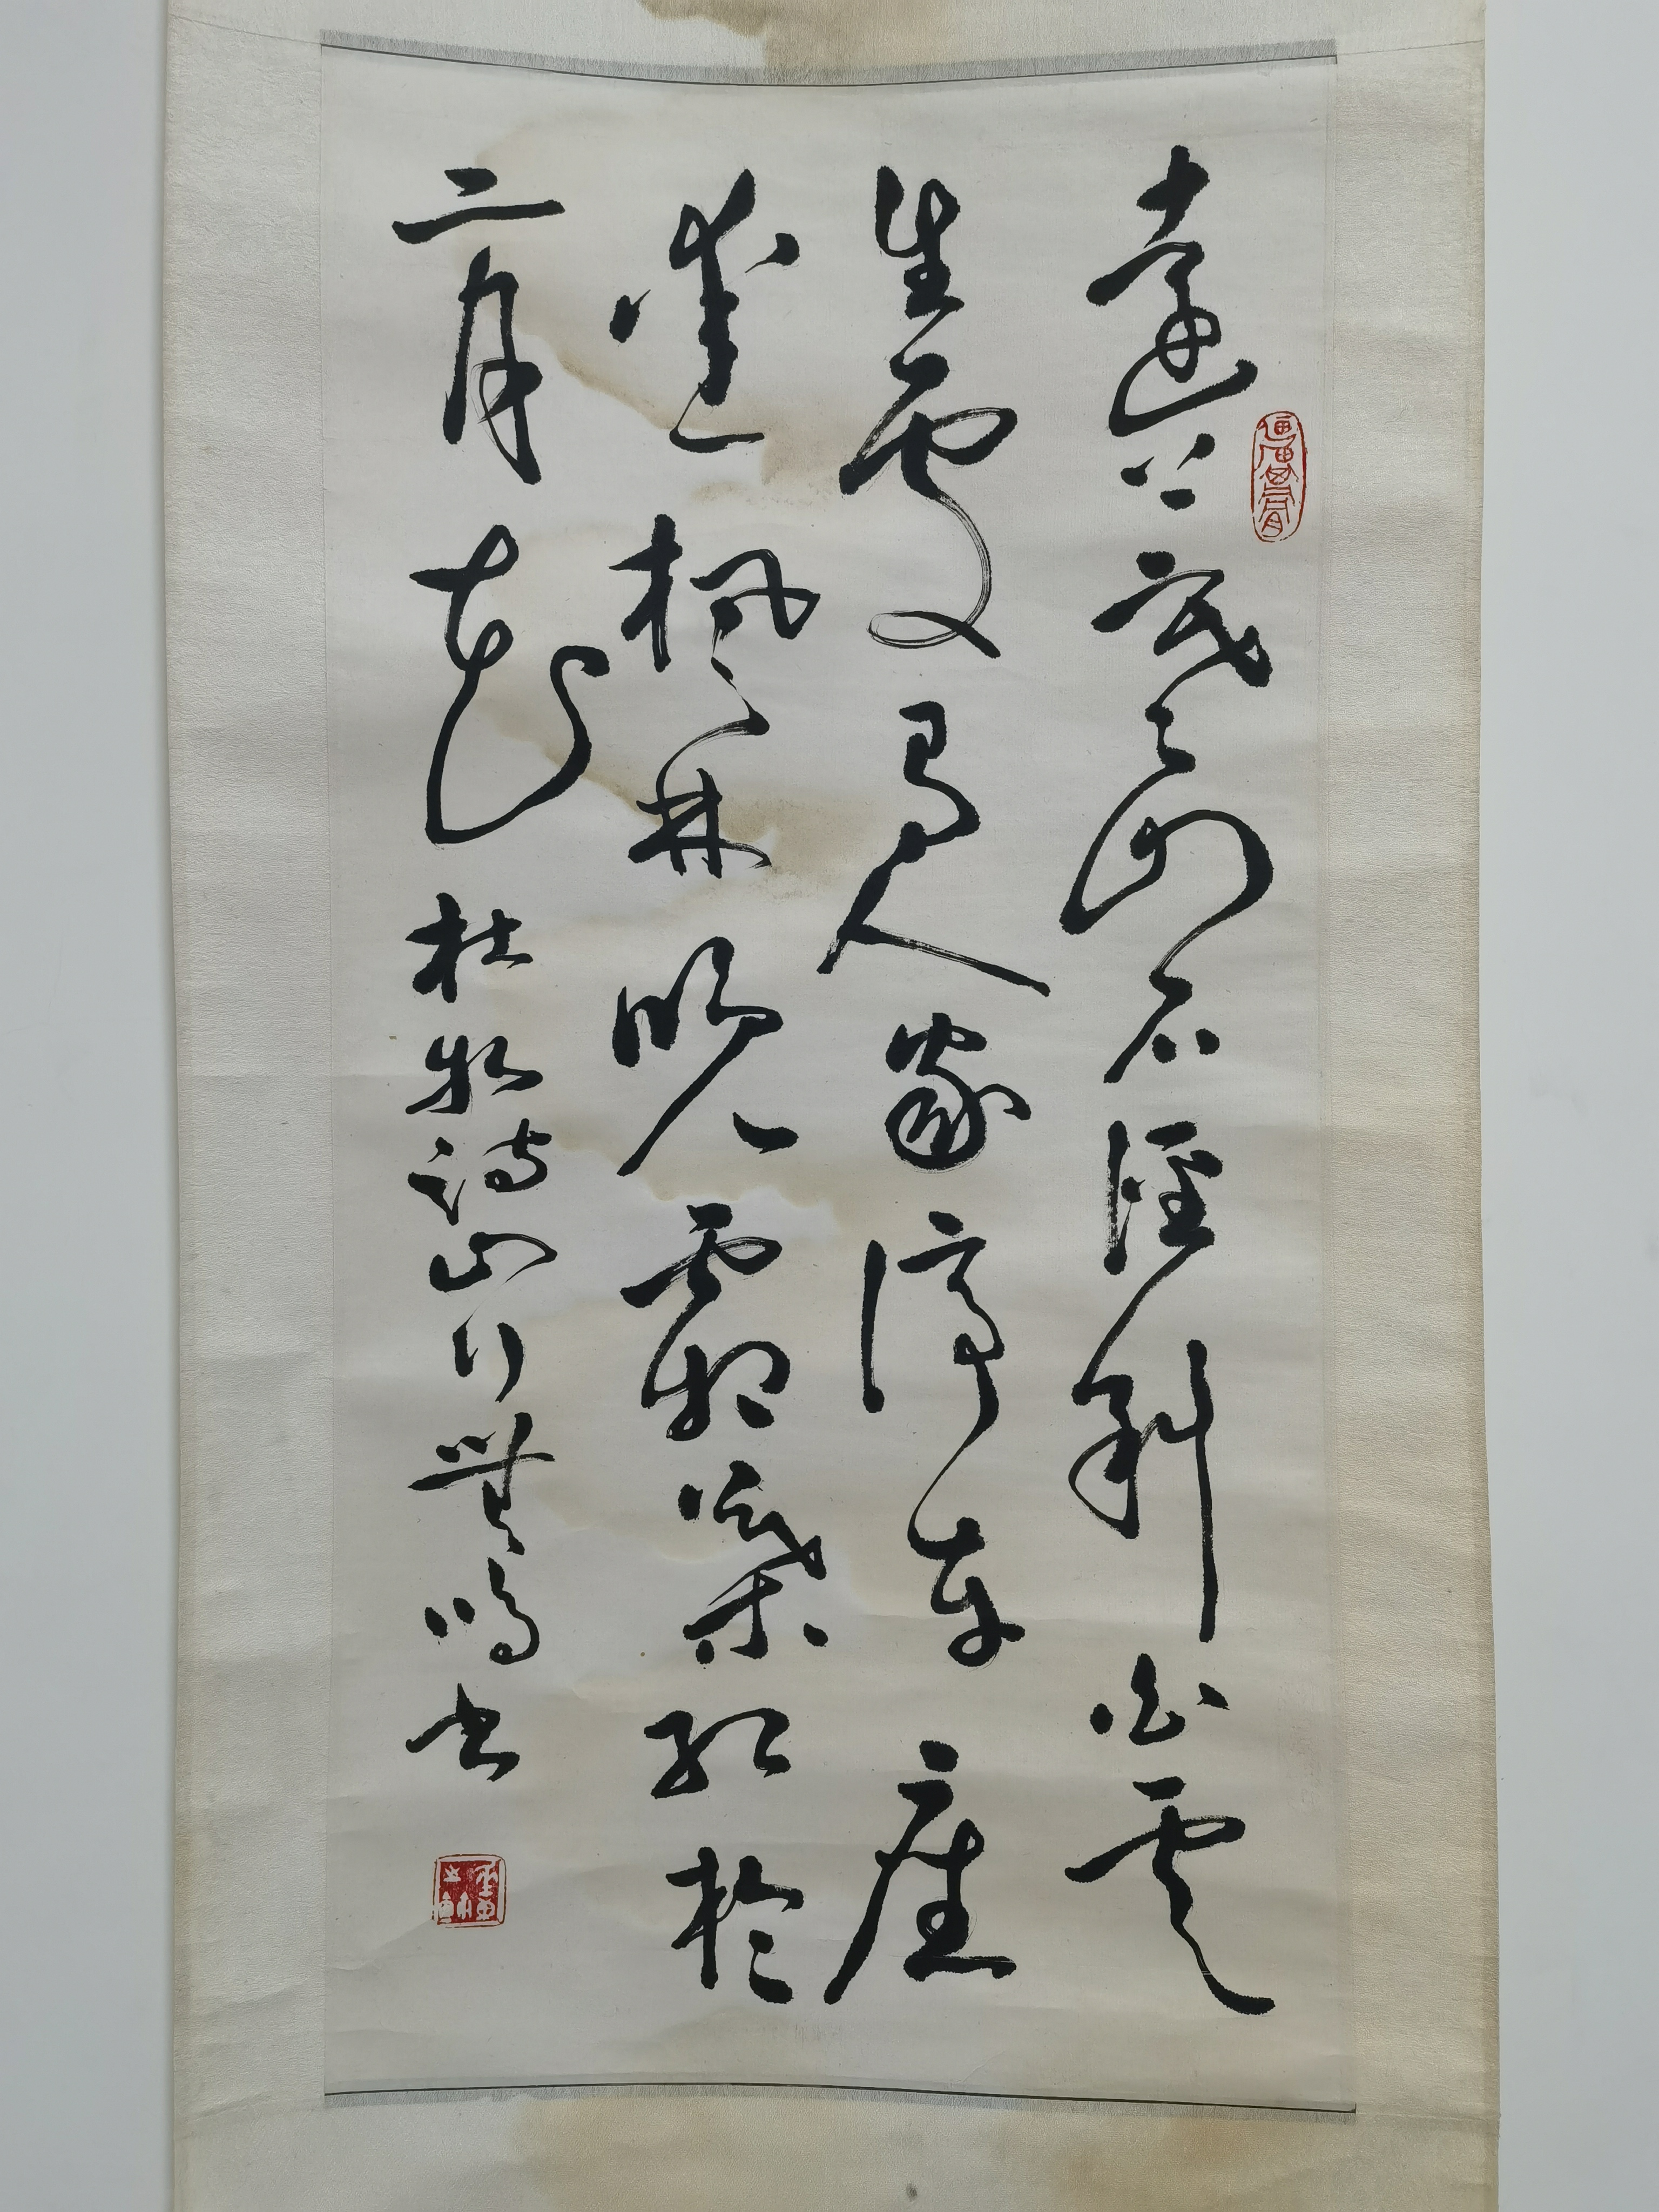 遠上寒山石徑斜白雲
生處有人家停車座
愛楓林晚霜葉紅於
二月花 杜牧詩山行 書